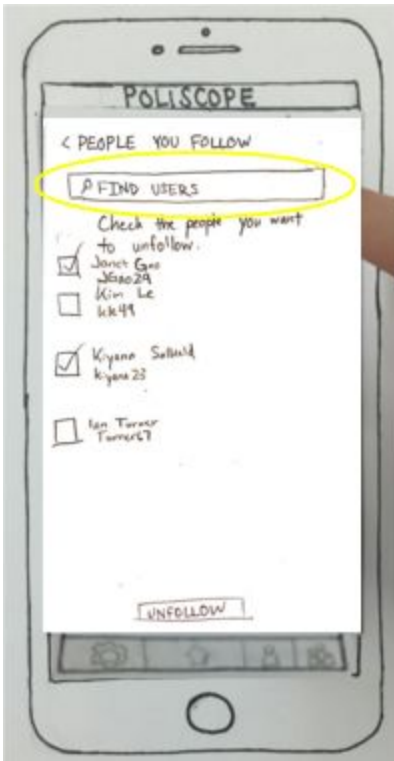 POLISCOPE
< PEOPLE YOU FOLLOW
FIND USERS
Check the people you want
to unfollow.
Janet Gao
JGao29
Kim Le
kk49
Kiyana
kiyana23
Ian Turner
Turner67
UNFOLLOW